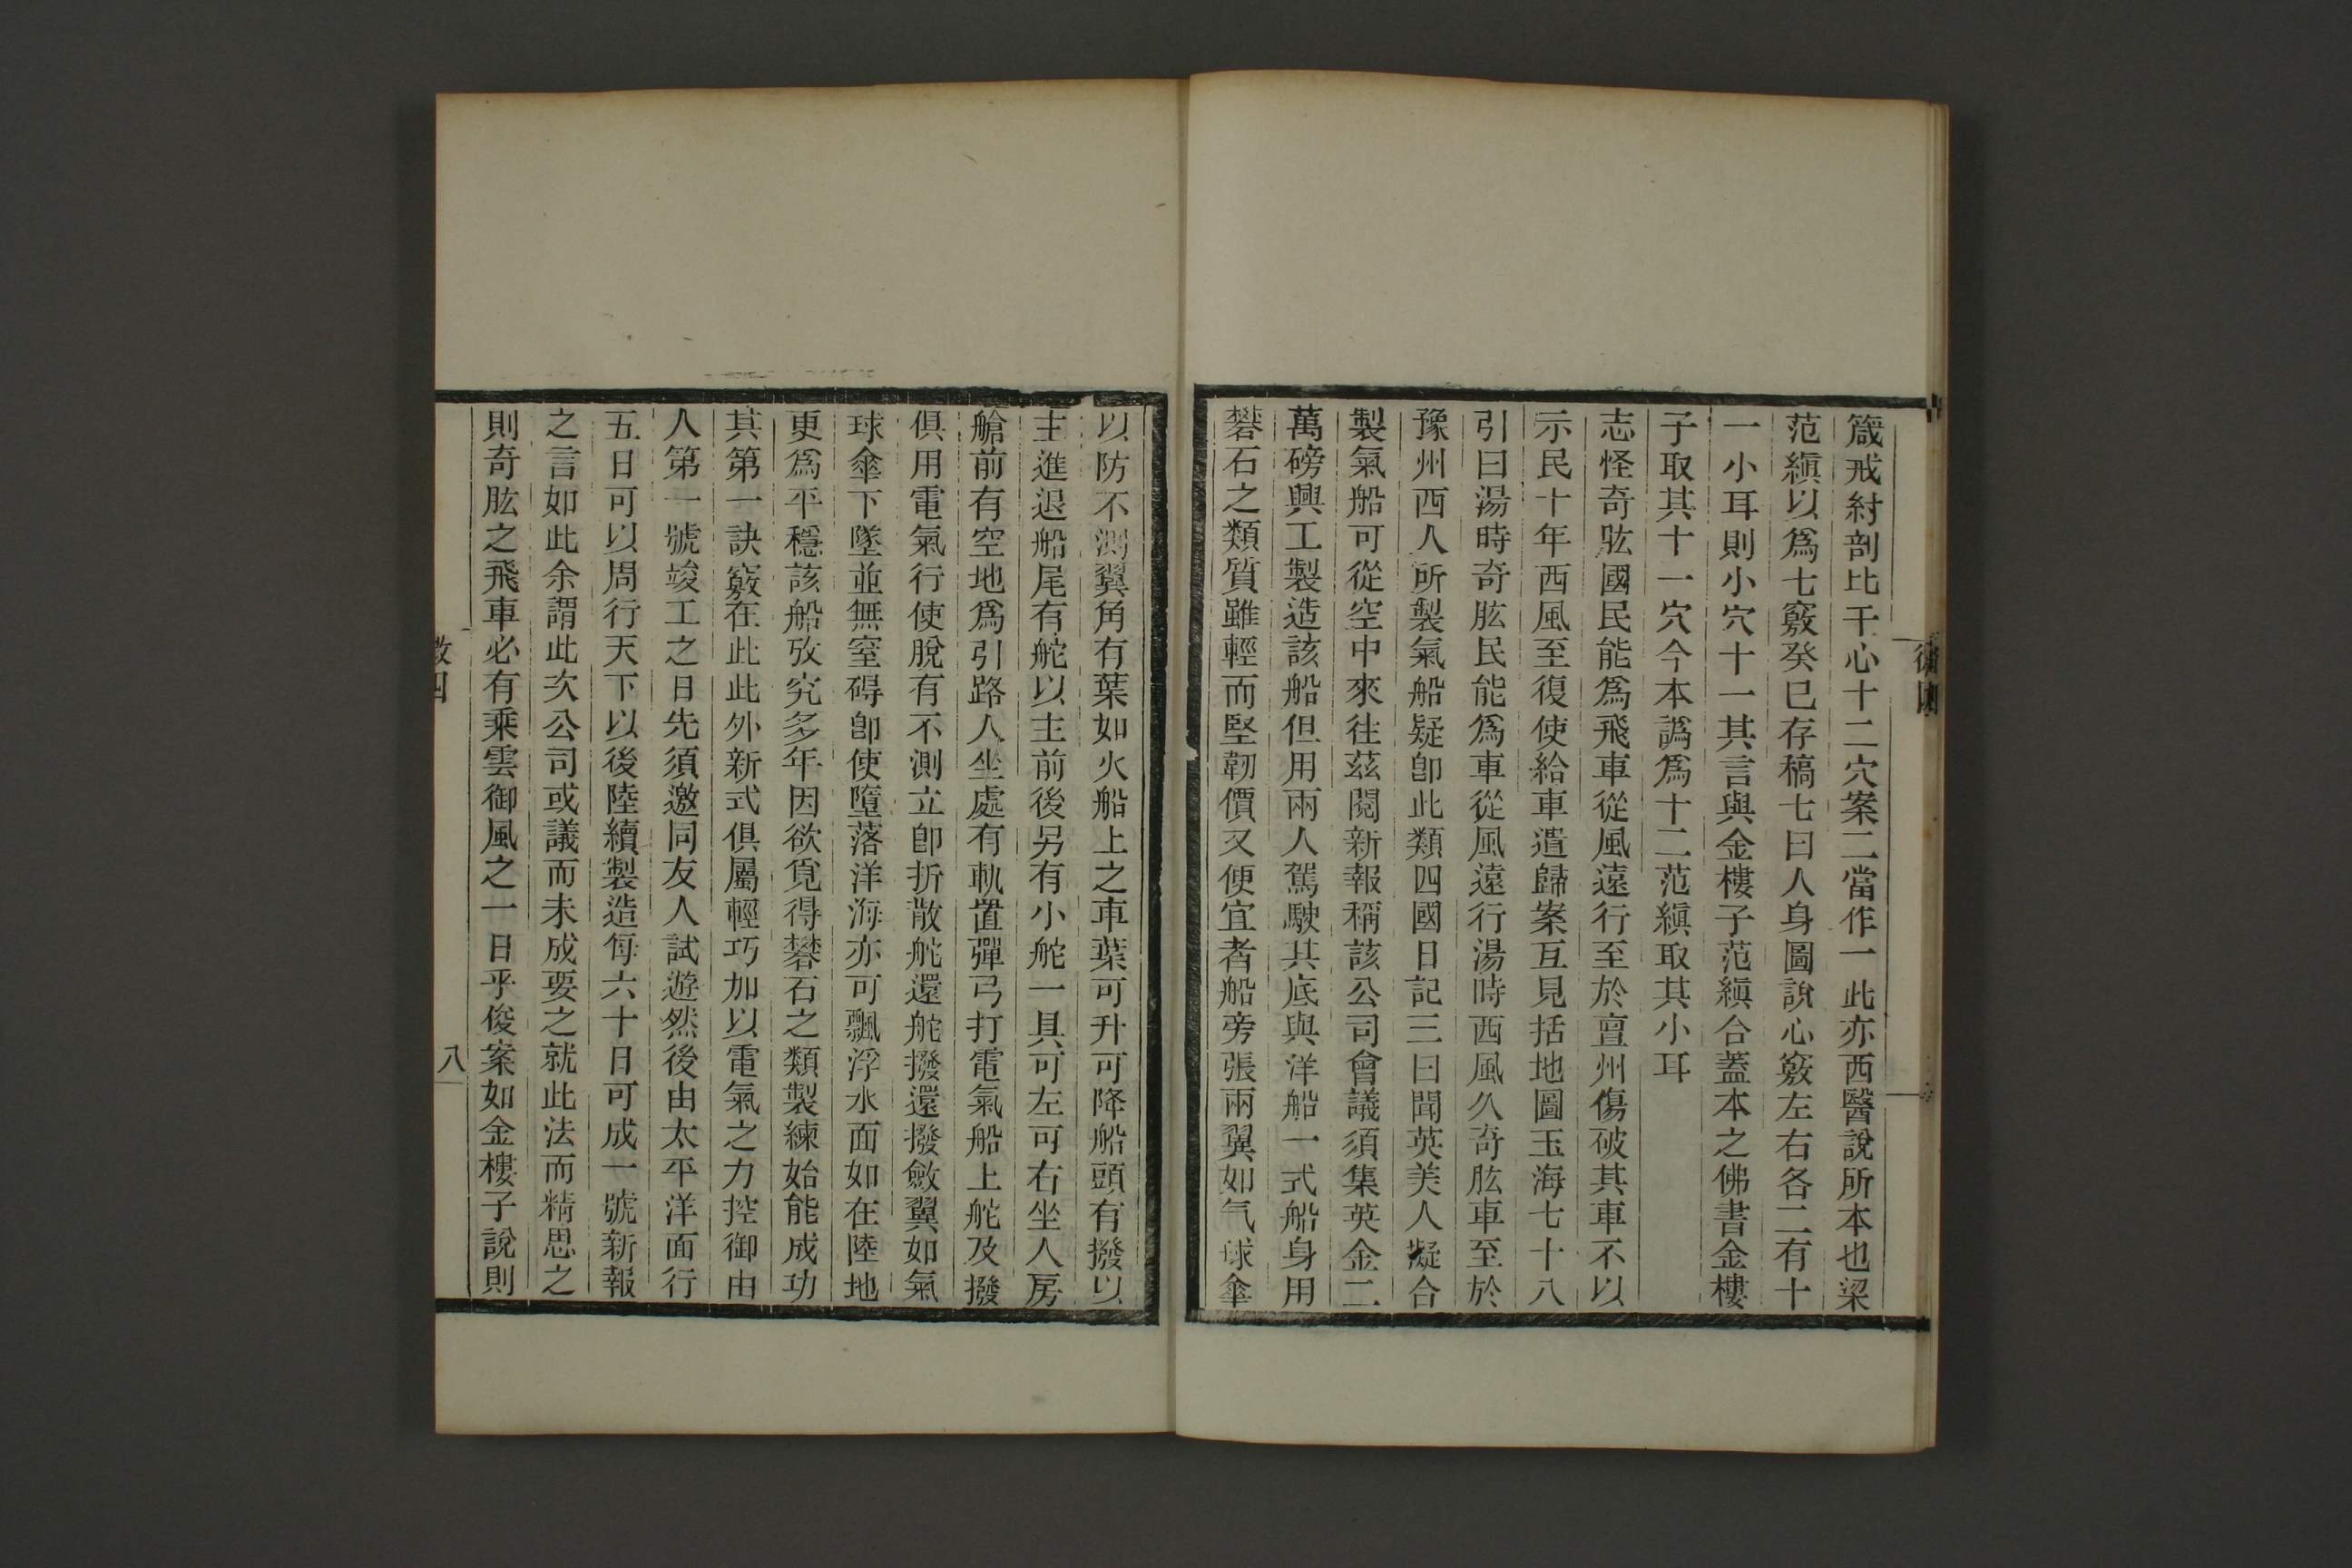 箴戒紂剖比干心十二穴案二當作一此亦西醫說所本也梁
范縝以爲七竅癸巳存稿七曰人身圖說心竅左右各二有十
一小耳則小穴十一其言與金樓子范縝合蓋本之佛書金樓
子取其十一穴今本譌爲十二范縝取其小耳
志怪奇肱國民能爲飛車從風遠行至於亶州傷破其車不以
示民十年西風至復使給車遣歸案互見括地圖玉海七十八
引曰湯時奇肱民能爲車從風遠行湯時西風久奇肱車至於
豫州西人所製氣船疑卽此類四國日記三曰聞英美人凝合
製氣船可從空中來往茲閱新報稱該公司會議須集英金二
萬磅興工製造該船但用兩人駕駛其底與洋船一式船身用
礬石之類質雖輕而堅韌價又便宜者船旁張兩翼如气球傘
以防不測翼角有葉如火船上之車葉可升可降船頭有撥以
主進退船尾有舵以主前後另有小舵一具可左可右坐人房
艙前有空地爲引路人坐處有軌置彈弓打電氣船上舵及撥
俱用電氣行使脫有不測立卽折散舵還舵撥還撥斂翼如氣
球傘下墜並無窒碍卽使墮落洋海亦可飄浮水面如在陸地
更爲平穩該船攷究多年因欲覓得礬石之類製練始能成功
其第一訣竅在此此外新式俱屬輕巧加以電氣之力控御由
人第一號竣工之日先須邀同友人試遊然後由太平洋面行
五日可以周行天下以後陸續製造每六十日可成一號新報
之言如此余謂此次公司或議而未成要之就此法而精思之
則奇肱之飛車必有乘雲御風之一日乎俊案如金樓子說則
八